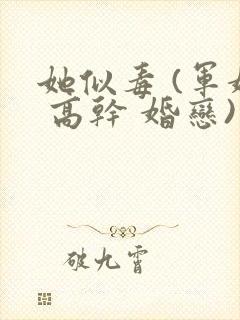 她似毒 (軍
高幹 婚戀)
破九霄